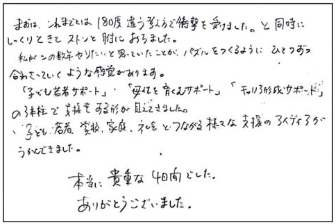 まずは、これまでとは180度違う考え方で衝撃を受けました。と同時に
しっくりときてストンと肘におちました。
私がこの数年やりたいと思っていたことが、パズルをつくるようにひとつずつ
合わさっていくような感覚があります。
「子ども若者サポート」・「母性を育くむサポート」「キャリア形成サポート」
の3本柱で支援をする形が見えてきました。
子ども、若者、学校、家庭、社会とつながる様々な支援のアイディアが
うかんできました。
本当に貴重な4日間でした。
ありがとうございました。